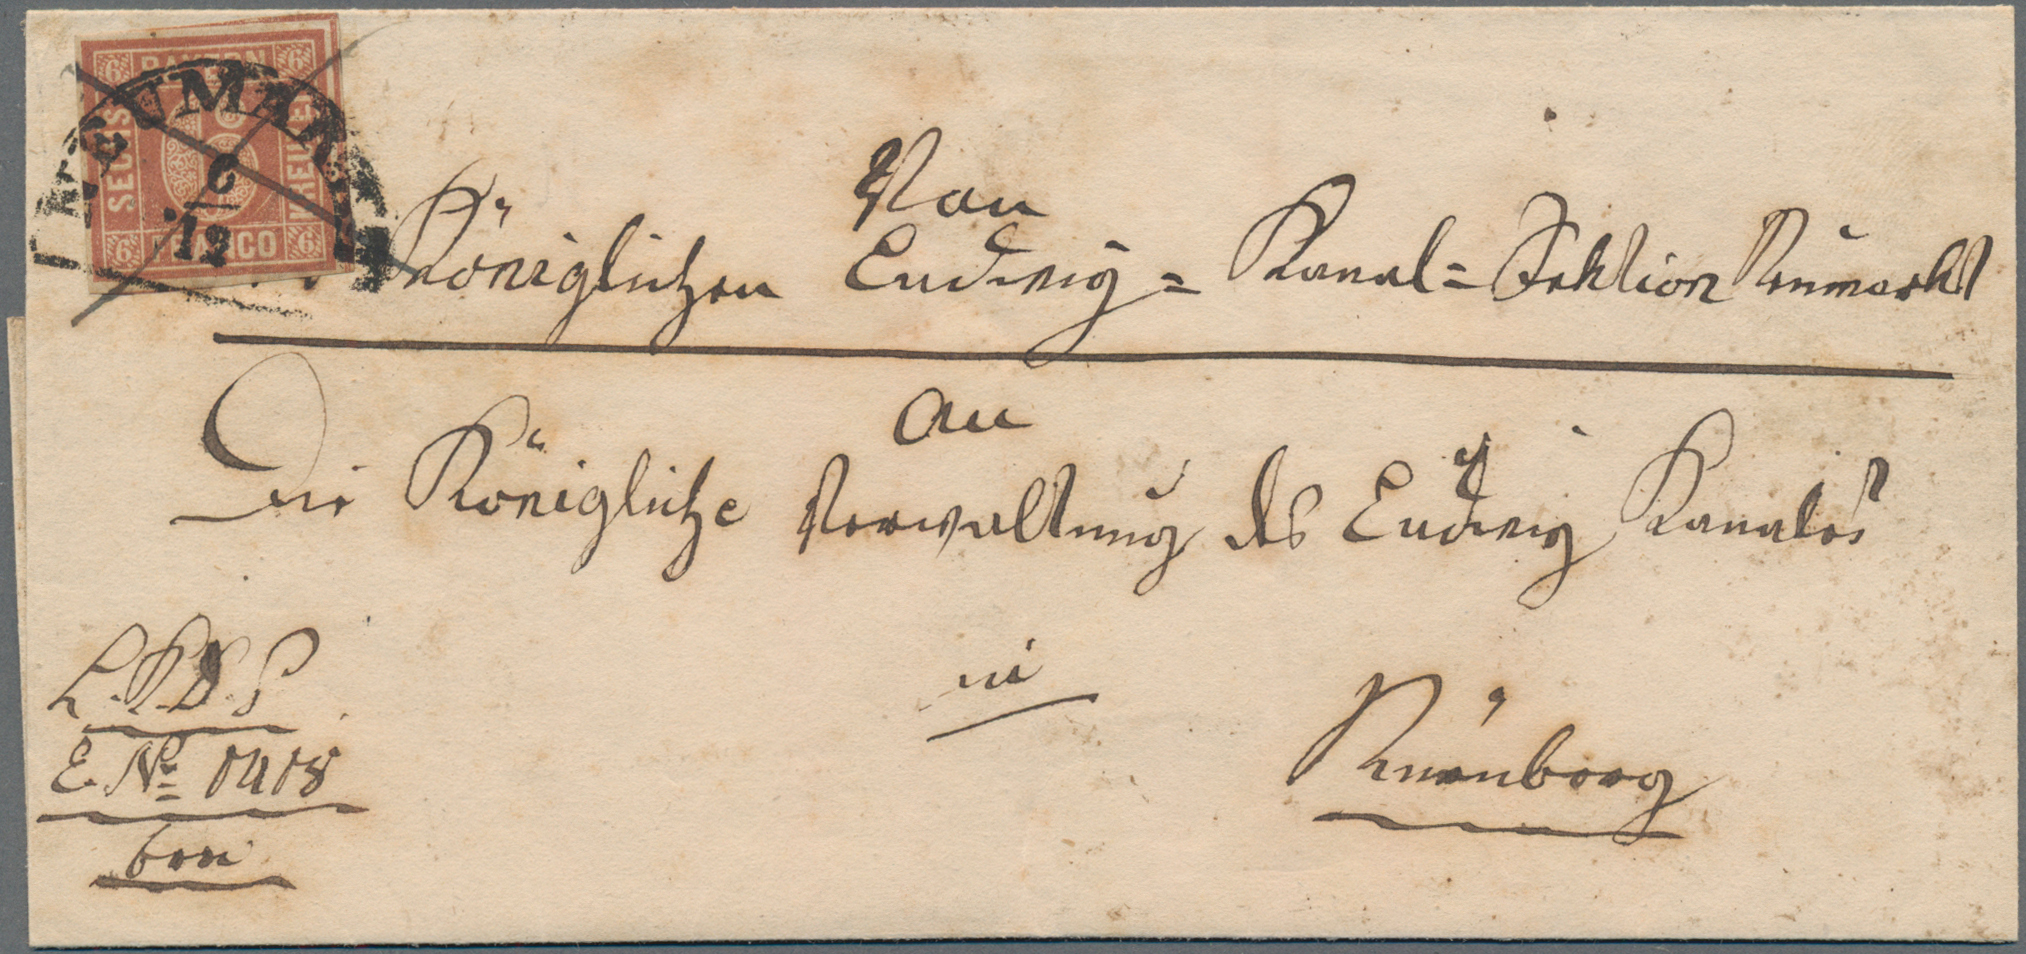 6 BAYERN 6
SECHS
KREUZER
6 FRANCO 6
NEUMARKT
6
12
Von
Königlichen Ludwig = Kanal = Sektion Neumarkt
An
Die Königliche Verwaltung des Ludwig Kanales
in
Nürnberg
E. No